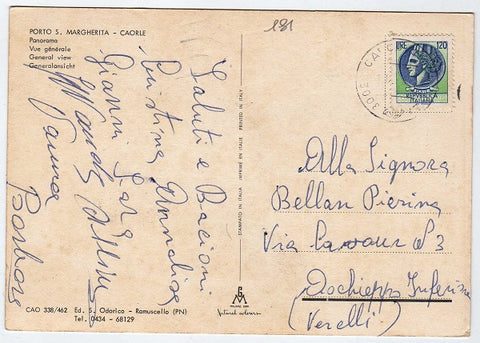 PORTO S. MARGHERITA - CAORLE
Panorama
Vue générale
General view
Generalansicht
181
Saluti e Bacioni
Cristina Annalisa
Gianni Sara
Wanda
Vanna
Barbara
STAMPATO IN ITALIA IMPRIMÉ EN ITALIE PRINTED IN ITALY
LIRE 120
REPUBBLICA
ITALIANA
Alla Signora
Bellan Pierina
Via Cavour N° 3
Inferiore
(Vercelli)
CAO 338/462 Ed. S. Odorico - Ramuscello (PN)
Tel. 0434 - 68129